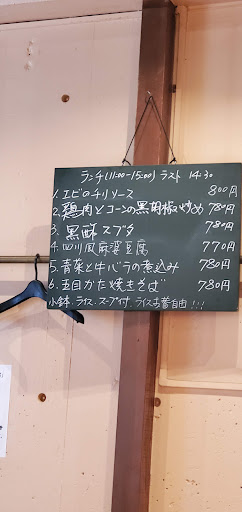 ランチ(11:00-15:00) ラスト 14:30
1. エビのチリソース 800円
2. 鶏肉とコーンの黒胡椒炒め 780円
3. 黒酢スブタ 780円
4. 四川風麻婆豆腐 770円
5. 青菜と牛バラの煮込み 780円
6. 五目かた焼きそば 780円
小鉢.ライス.スープ付. ライスお替自由!!!